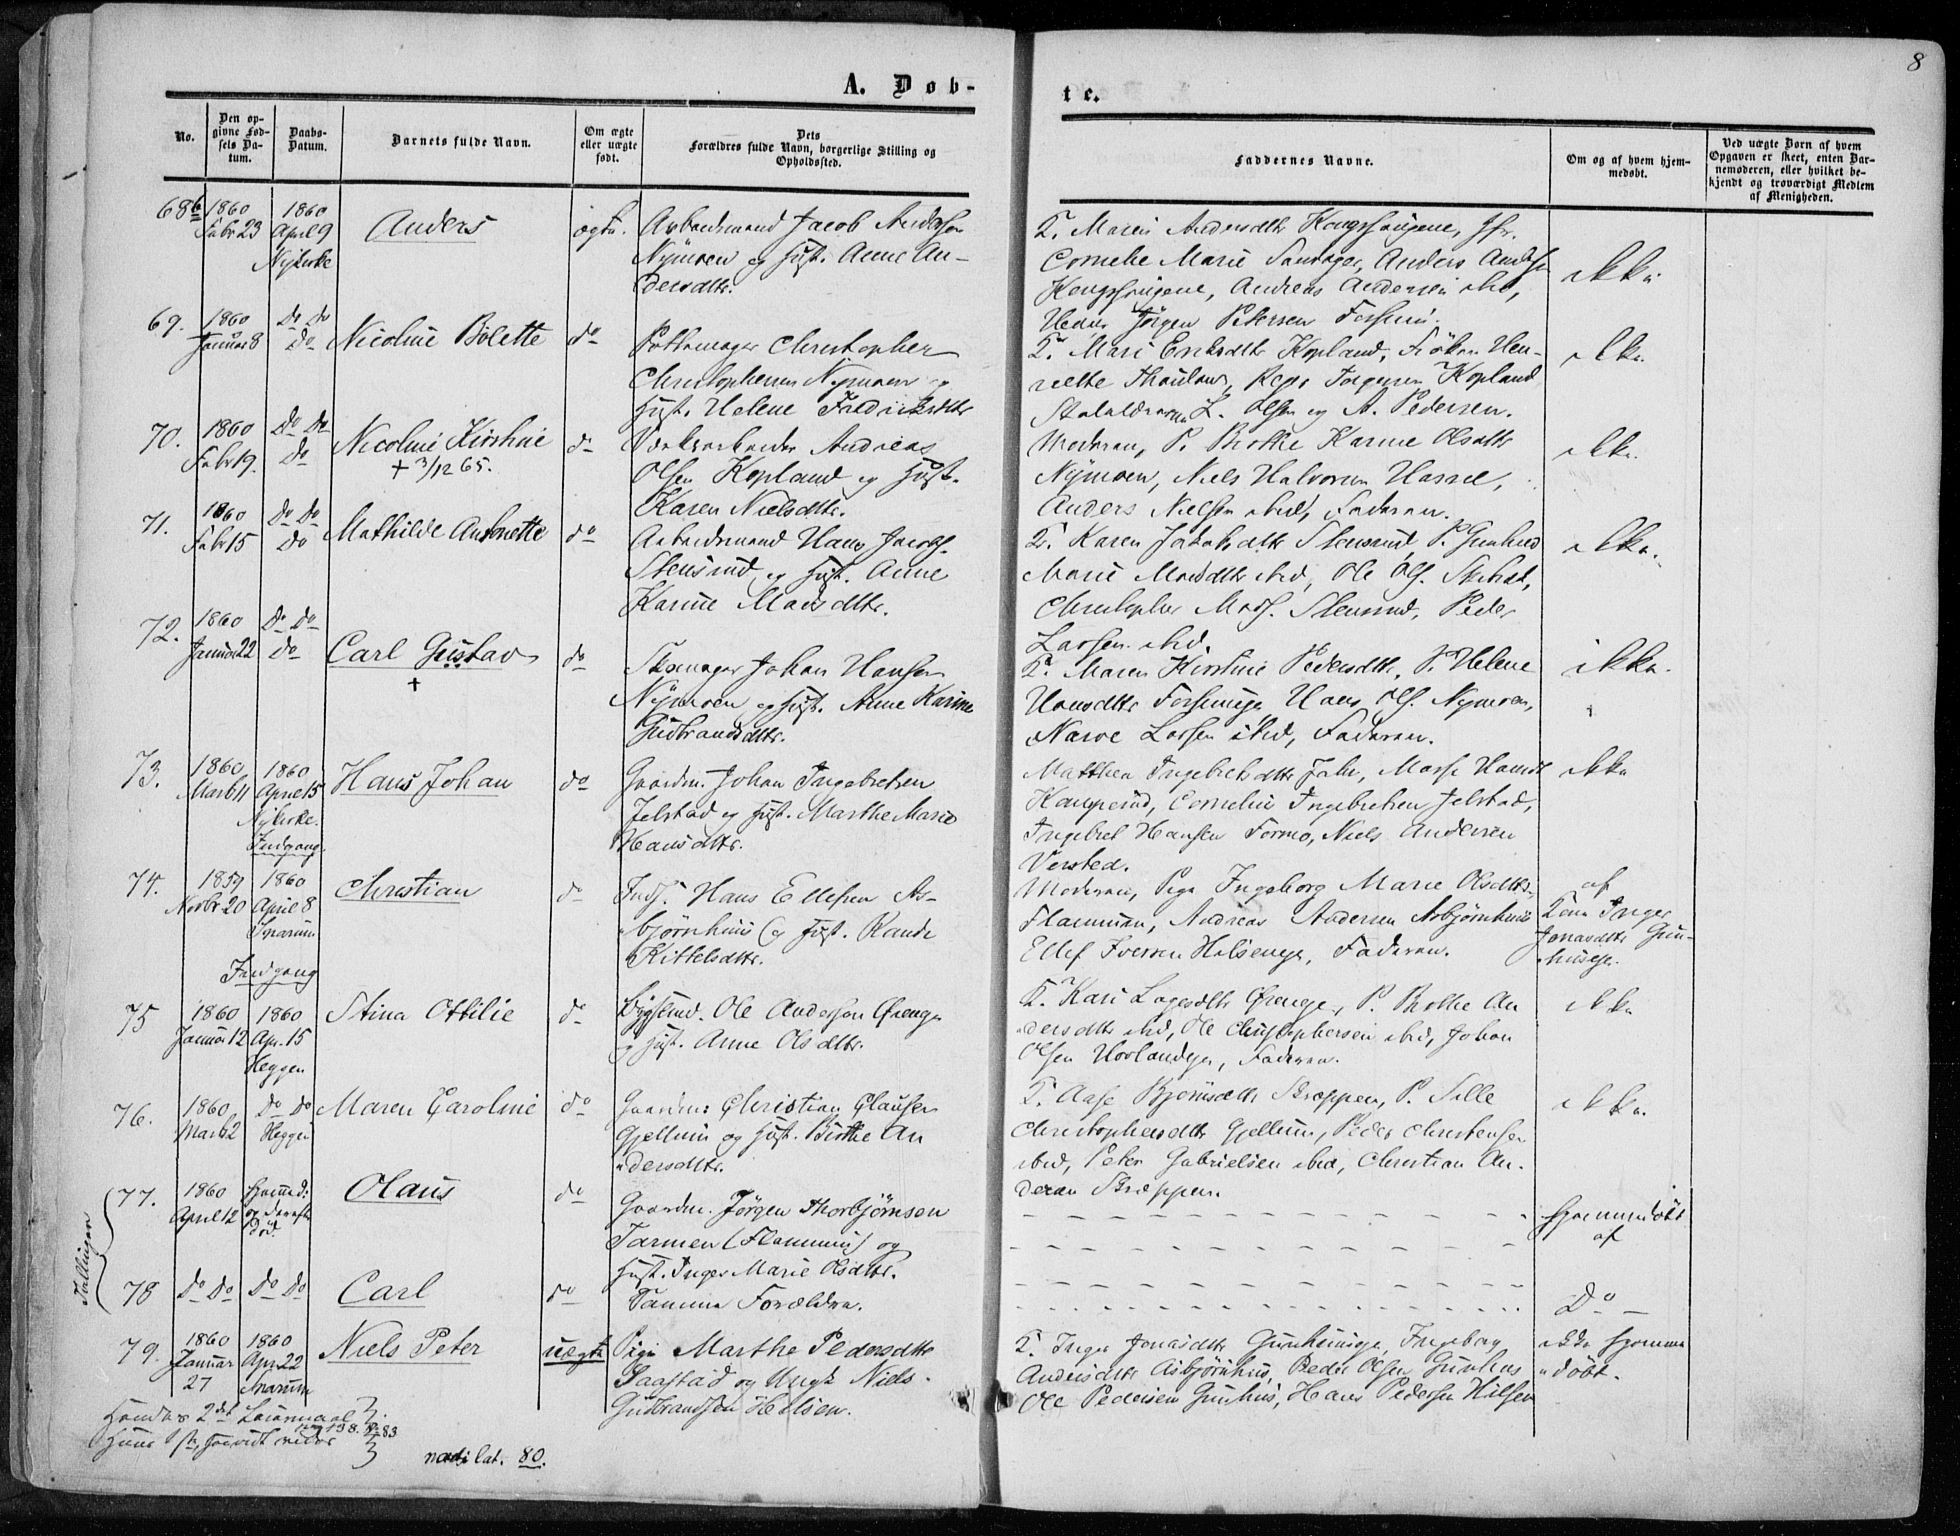 8
A. Døb-
te.
No.
Den op-
givne Fød-
sels Da-
tum.
Daabs-
Datum.
Barnets fulde Navn.
Om ægte
eller uægte
født.
Dets
Forældres fulde Navn, borgerlige Stilling og
Opholdssted.
Faddernes Navne.
Om og af hvem hjem-
medøbt.
Ved uægte Børn af hvem
Opgaven er skeet, enten Bar-
nemoderen, eller hvilket be-
kjendt og troværdigt Medlem
af Menigheden.
68
1860
Febr 23
1860
April 9
Nykirke
Anders
ægte.
Arbeidsmand Jacob Andersen
Nymoen og Hust. Anne An-
dersdtr.
T. Maren Andersdtr Kongshougene, Jfr.
Cornelie Marie Sanvager, Anders Anders.
Kongshougene, Andreas Andersen ibid,
Jörgen Petersen
ikke
69.
1860
Januar 8
Do Do
Do
Nicoline Bolette
do
Pottemager Christopher
Christophersen Nymoen og
Hust. Helene Fredriksdtr
T. Mari Eriksdtr Kopland, Fröken Hen-
riette Thaulow, Peder Torgersen Kopland
L. Olsen og A. Pedersen.
ikke
70.
1860
Febr 19.
Do Do
Do
Nicoline Kirstine
+ 3/12 65.
do
Værksarbeider Andreas
Olsen Kopland og Hust.
Karen Nielsdtr.
Moderen, P. Birthe Karine Olsdtr
Nymoen, Niels Halvorsen Hassel,
Anders Nielsen ibid, Faderen.
ikke
71.
1860
Febr 15
Do Do
Do
Mathilde Antonette
do
Arbeidsmand Hans Jacobs.
Stensrud og Hust. Anne
Karine Madsdtr.
T. Karen Jakobsdtr Stensrud, P. Gunhild
Marie Madsdtr ibid, Ole Ols.
Christopher Mads. Stensrud, Peder
Larsen ibid.
ikke.
72.
1860
Januar 22
Do Do
Do
Carl Gustav
+
do
Skomager Johan Hansen
Nymoen og Hust. Anne Karine
Gudbrandsdtr.
T. Maren Kirstine Pedersdtr, P. Helene
Hansdtr Hans Ols. Nymoen,
Narve Larsen ibid, Faderen.
ikke.
73.
1860
Marts 11
1860
April 15
Nykirke.
Indgang.
Hans Johan
do
Gaardm. Johan Ingebretsen
Jelstad og Hust. Marthe Marie
Hansdtr.
Matthea Ingebretsdtr Jahr,
Cornelius Ingebretsen Jelstad,
Ingebret Hansen Formo, Niels Andersen
Versted.
ikke
74.
1859
Novbr 20
1860
April 8
Snarum
Indgang
Christian
do
Inds. Hans Ellefsen As-
björnhuus og Hust. Randi
Kittelsdtr.
Moderen, Pige Ingeborg Marie Olsdtr.
Flannum, Andreas Andersen Asbjørnhuus
Ellef Iversen Faderen.
af
Kone Inger
Jonasdtr Gun-
huseje.
75
1860
Januar 12
1860
Apr. 15
Heggen
Stina Ottilie
do
Bygselmd. Ole Anderssen Grænge
og Hust. Anne Olsdtr.
T. Kari P. Birthe An
dersdtr ibid, Ole Christophersen ibid, Johan
Olsen Hovlandeje, Faderen.
ikke
76.
1860
Marts 2
Do Do
Heggen
Maren Caroline
do
Gaardm: Christian Clausen
Gjellum og Hust. Birthe An
dersdtr.
T. Aase Björnsdtr Bræppen, P. Sille
Christophersdtr Gjellum, Peder Christensen
ibid, Peter Gabrielsen ibid, Christian An-
dersen Bræppen.
ikke.
Tvillinger
77.
1860
April 12
Hjemmed:
og derefter
Död
Olaus
do
Gaardm. Jørgen Thorbjørnsen
Tarmen (Flannum) og
Hust. Inger Marie Olsdtr.
Hjemmedöbt
af
78
Do Do
Do Do
Carl
do
Samme Forældre.
Do
79.
1860
Januar
27
1860
Apr. 22
Snarum
Niels Peter
uægte
Pige Marthe Pedersdtr
Saastad og Ungk. Niels
Gudbrandsen Hilsen.
T. Inger Jonasdtr Gunhuseje, Ingeborg
Andersdtr Asbjörnhuus, Peder Olsen Gunhus
Ole Pedersen Gunhuus, Hans Pedersen Hilsen
ikke hjemme
döbt.
Hendes 2det Leiermaal
80.